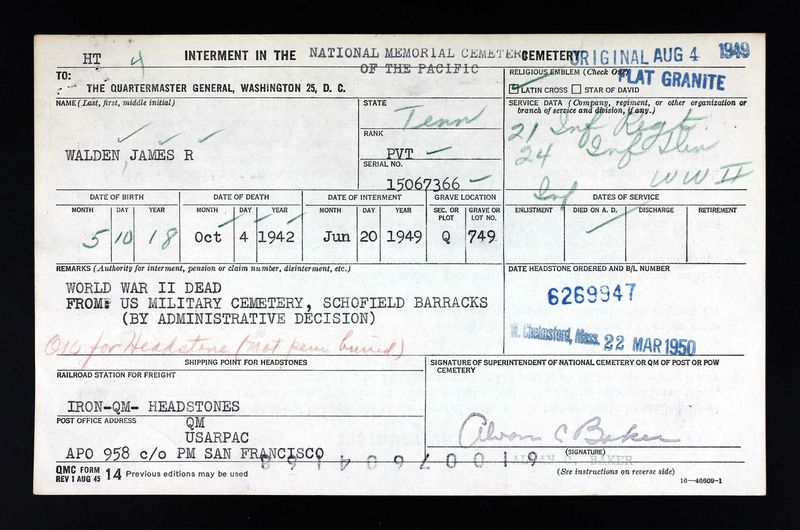 HT 4 INTERMENT IN THE NATIONAL MEMORIAL CEMETERY CEMETERY ORIGINAL AUG 4 1949
OF THE PACIFIC
TO:
THE QUARTERMASTER GENERAL, WASHINGTON 25, D. C.
RELIGIOUS EMBLEM (Check One) FLAT GRANITE
LATIN CROSS STAR OF DAVID
NAME (Last, first, middle initial)
WALDEN, JAMES R
STATE
Tenn
RANK
PVT
SERIAL NO.
15067366
SERVICE DATA (Company, regiment, or other organization or branch of service and division, if any.)
21 Inf Regt.
24 Inf Div
Inf WW II
DATE OF BIRTH DATE OF DEATH DATE OF INTERMENT GRAVE LOCATION DATES OF SERVICE
MONTH DAY YEAR MONTH DAY YEAR MONTH DAY YEAR SEC. OR PLOT GRAVE OR LOT NO. ENLISTMENT DIED ON A. D. DISCHARGE RETIREMENT
5 10 18 Oct 4 1942 Jun 20 1949 Q 749
REMARKS (Authority for interment, pension or claim number, disinterment, etc.)
WORLD WAR II DEAD
FROM: US MILITARY CEMETERY, SCHOFIELD BARRACKS
(BY ADMINISTRATIVE DECISION)
OK for Headstone (not perm buried)
DATE HEADSTONE ORDERED AND B/L NUMBER
6269947
W. Chelmsford, Mass. 22 MAR 1950
SHIPPING POINT FOR HEADSTONES
RAILROAD STATION FOR FREIGHT
IRON-QM- HEADSTONES
POST OFFICE ADDRESS QM
USARPAC
APO 958 c/o PM SAN FRANCISCO
SIGNATURE OF SUPERINTENDENT OF NATIONAL CEMETERY OR QM OF POST OR POW CEMETERY
Alvan C Baker
(SIGNATURE)
ALVAN C. BAKER
QMC FORM
REV 1 AUG 45 14 Previous editions may be used
(See instructions on reverse side)
16—46609-1